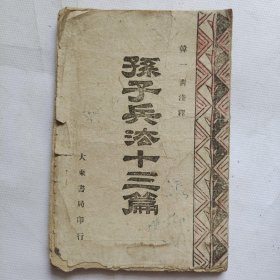 韓一青注釋
孫子兵法十三篇
大東書局印行